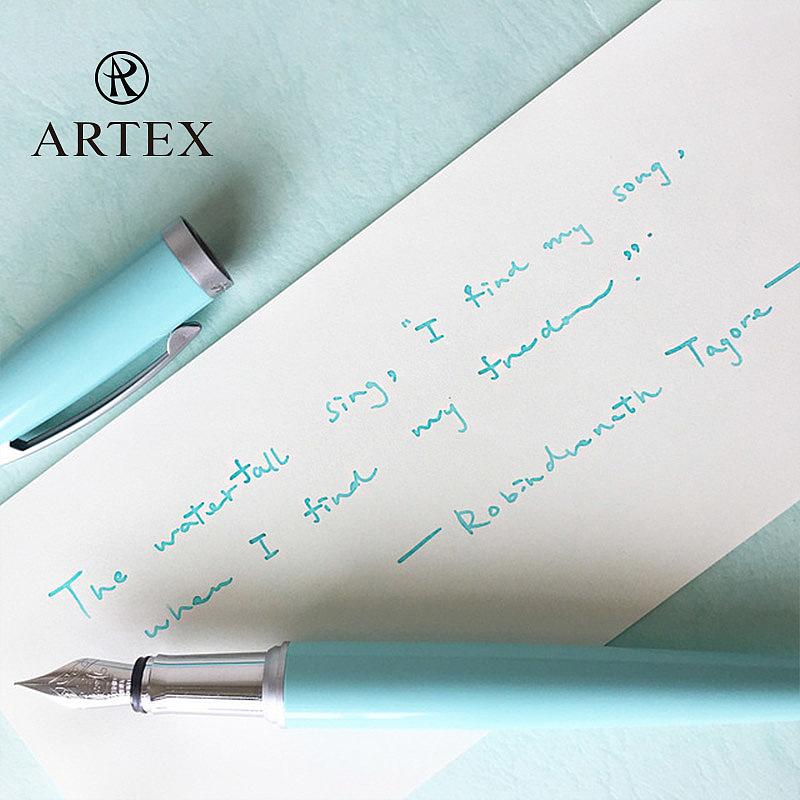 ARTEX
The waterfall sing, "I find my song,
when I find my freedom.".
— Robindranath Tagore —